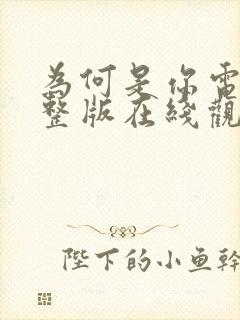 為何是你電
整版在綫觀
陛下的小鱼幹